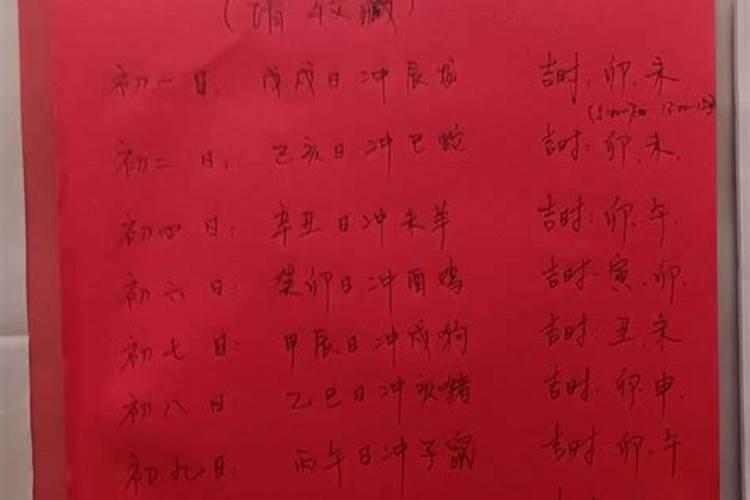 (请收藏)
初一日: 戊戌日冲辰龙 吉时: 卯.未.
(5:00-7:00 13:00-15:00)
初二日: 己亥日冲巳蛇 吉时: 卯.未.
初四日: 辛丑日冲未羊 吉时: 卯.午.
初六日: 癸卯日冲酉鸡 吉时: 寅.卯.
初七日: 甲辰日冲戌狗 吉时: 丑.未
初八日: 乙巳日冲亥猪 吉时: 卯.申.
初九日: 丙午日冲子鼠 吉时: 卯.午